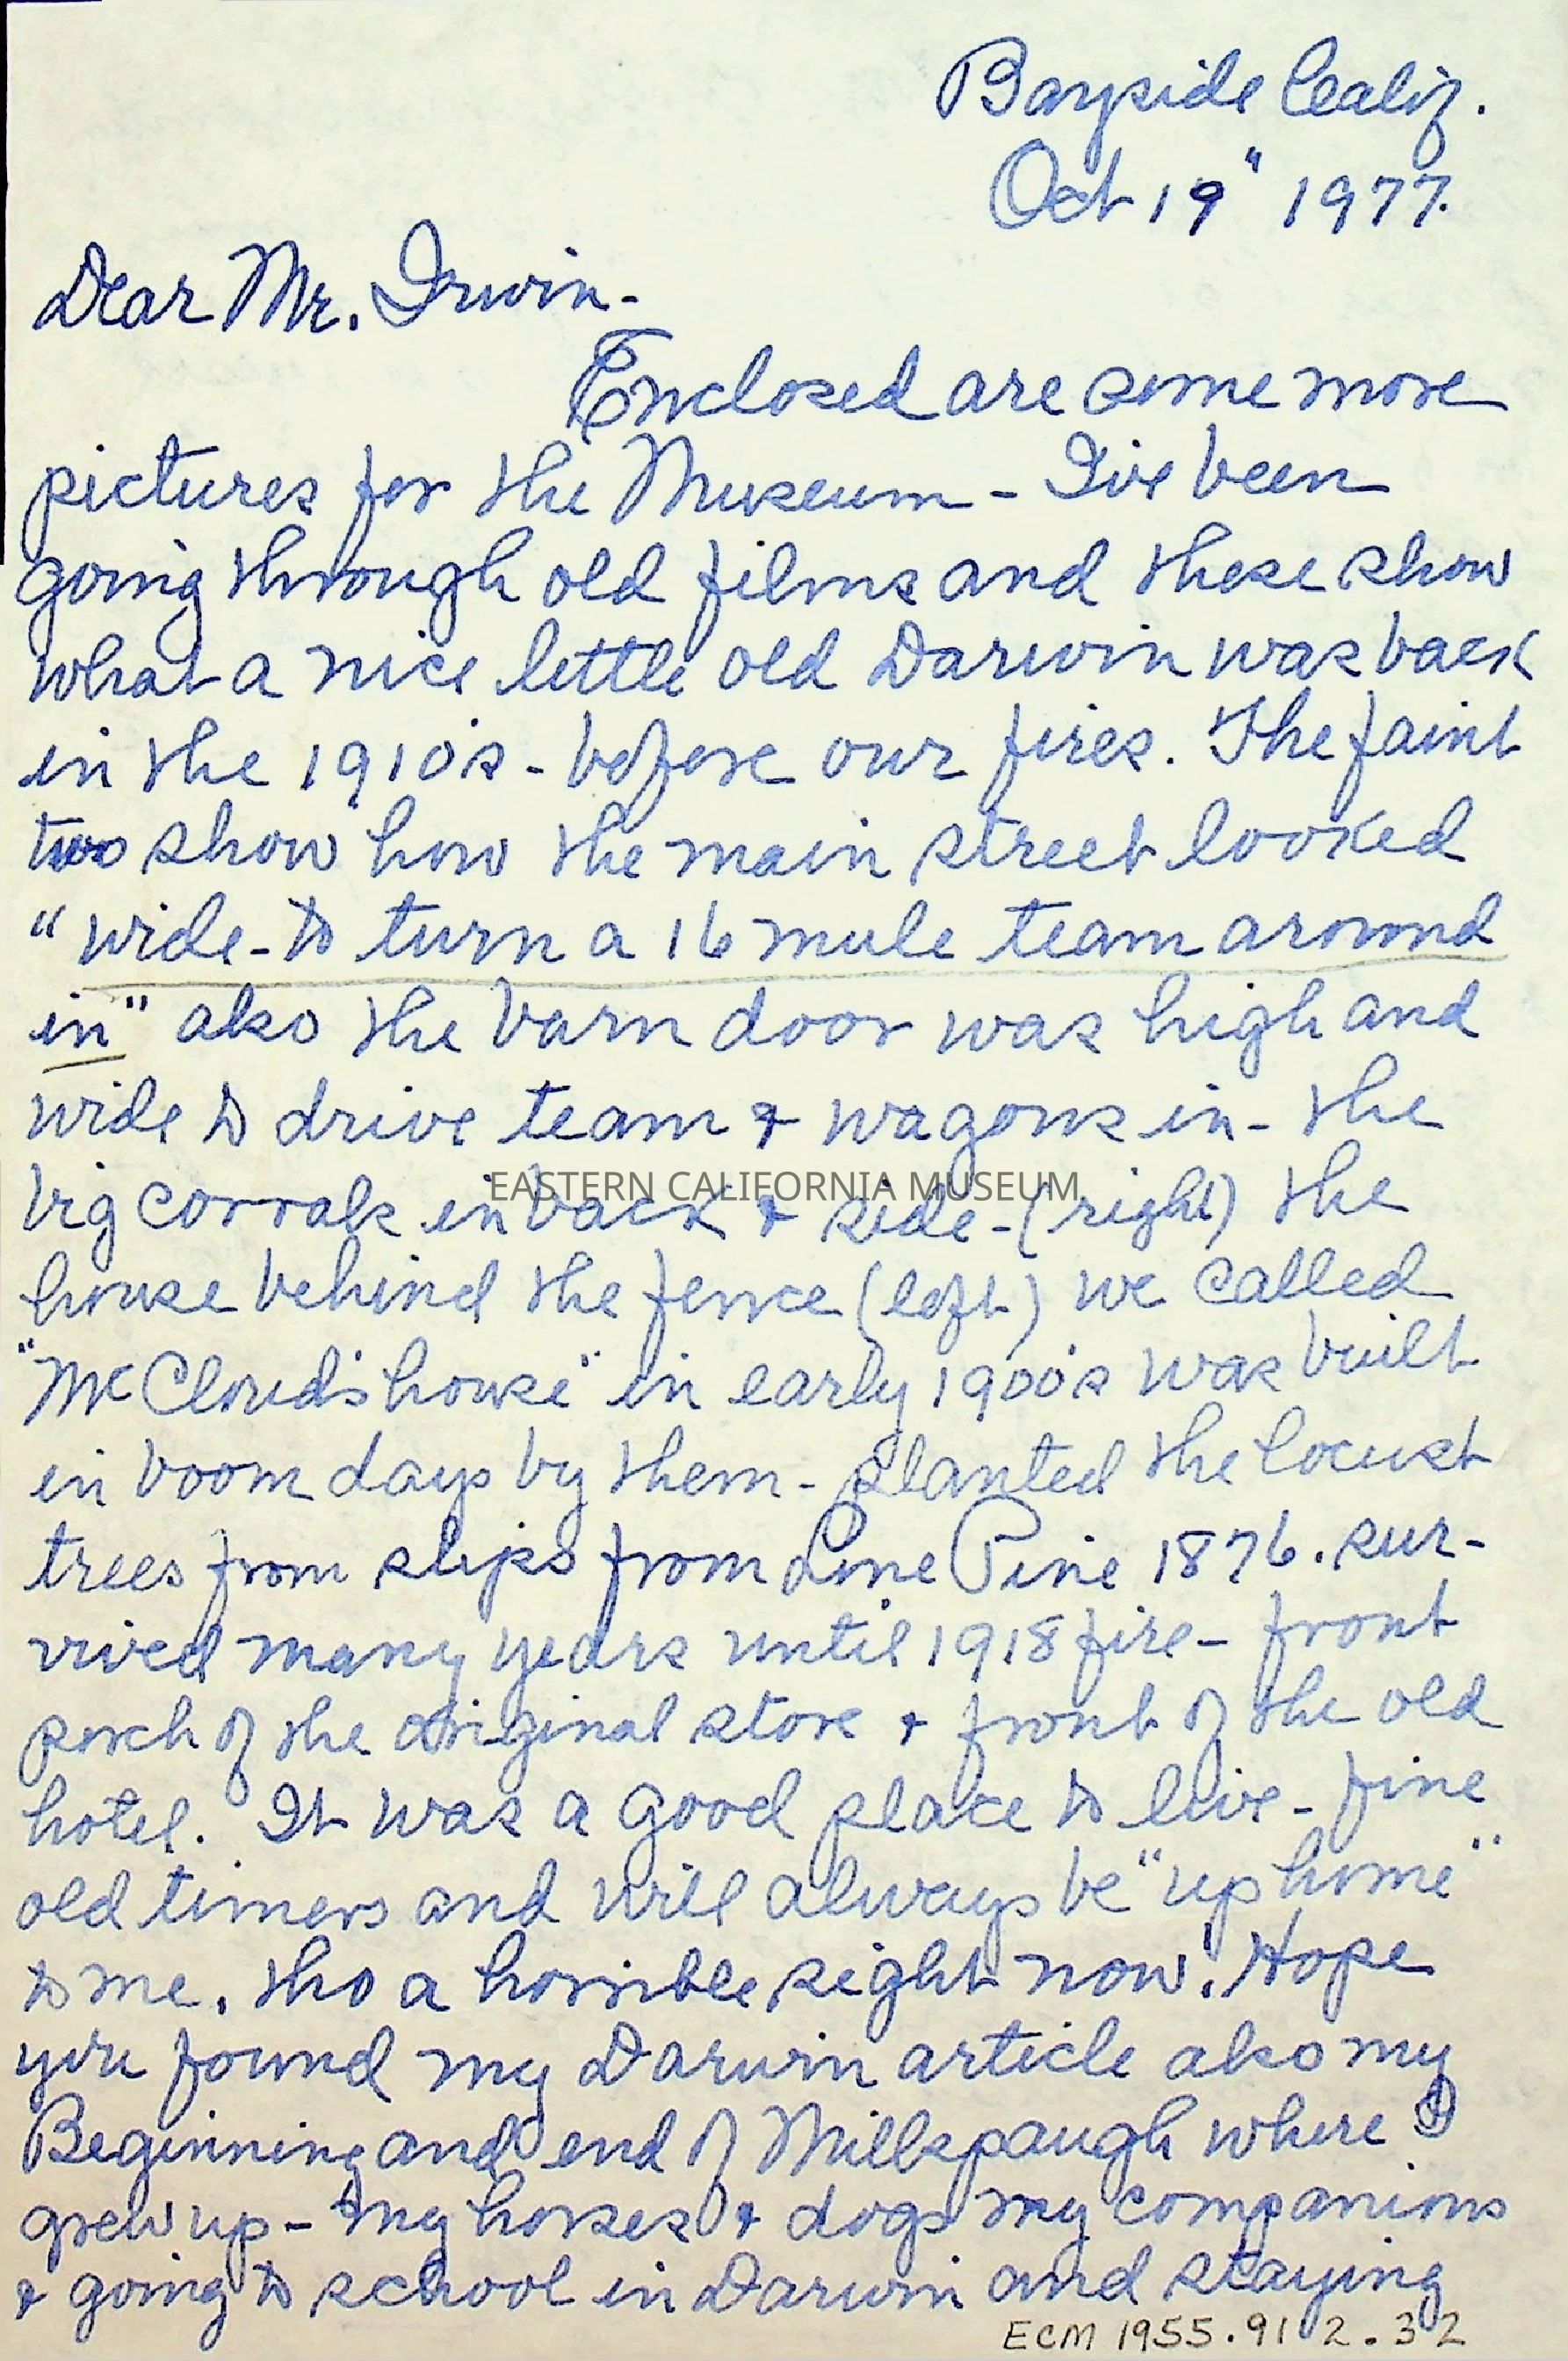 Bayside Calif.
Oct 19" 1977.
Dear Mr. Irwin-
Enclosed are some more
pictures for the Museum - I've been
going through old films and these show
what a nice little old Darwin was back
in the 1910's - before our fires. The faint
two show how the main street looked
"wide - to turn a 16 mule team around
in" also the barn door was high and
wide to drive team & wagons in - the
big corrals in back & side - (right) the
EASTERN CALIFORNIA MUSEUM
house behind the fence (left) we called
"McCloud's house" in early 1900's was built
in boom days by them - planted the locust
trees from slips from Lone Pine 1876. sur-
vived many years until 1918 fire - front
porch of the original store & front of the old
hotel. It was a good place to live - fine
old timers and will always be "up home"
to me, tho a horrible sight now! Hope
you found my Darwin article also my
Beginning and end of Millspaugh where I
grew up - my horses & dogs my companions
& going to school in Darwin and staying
ECM 1955.91.2.32